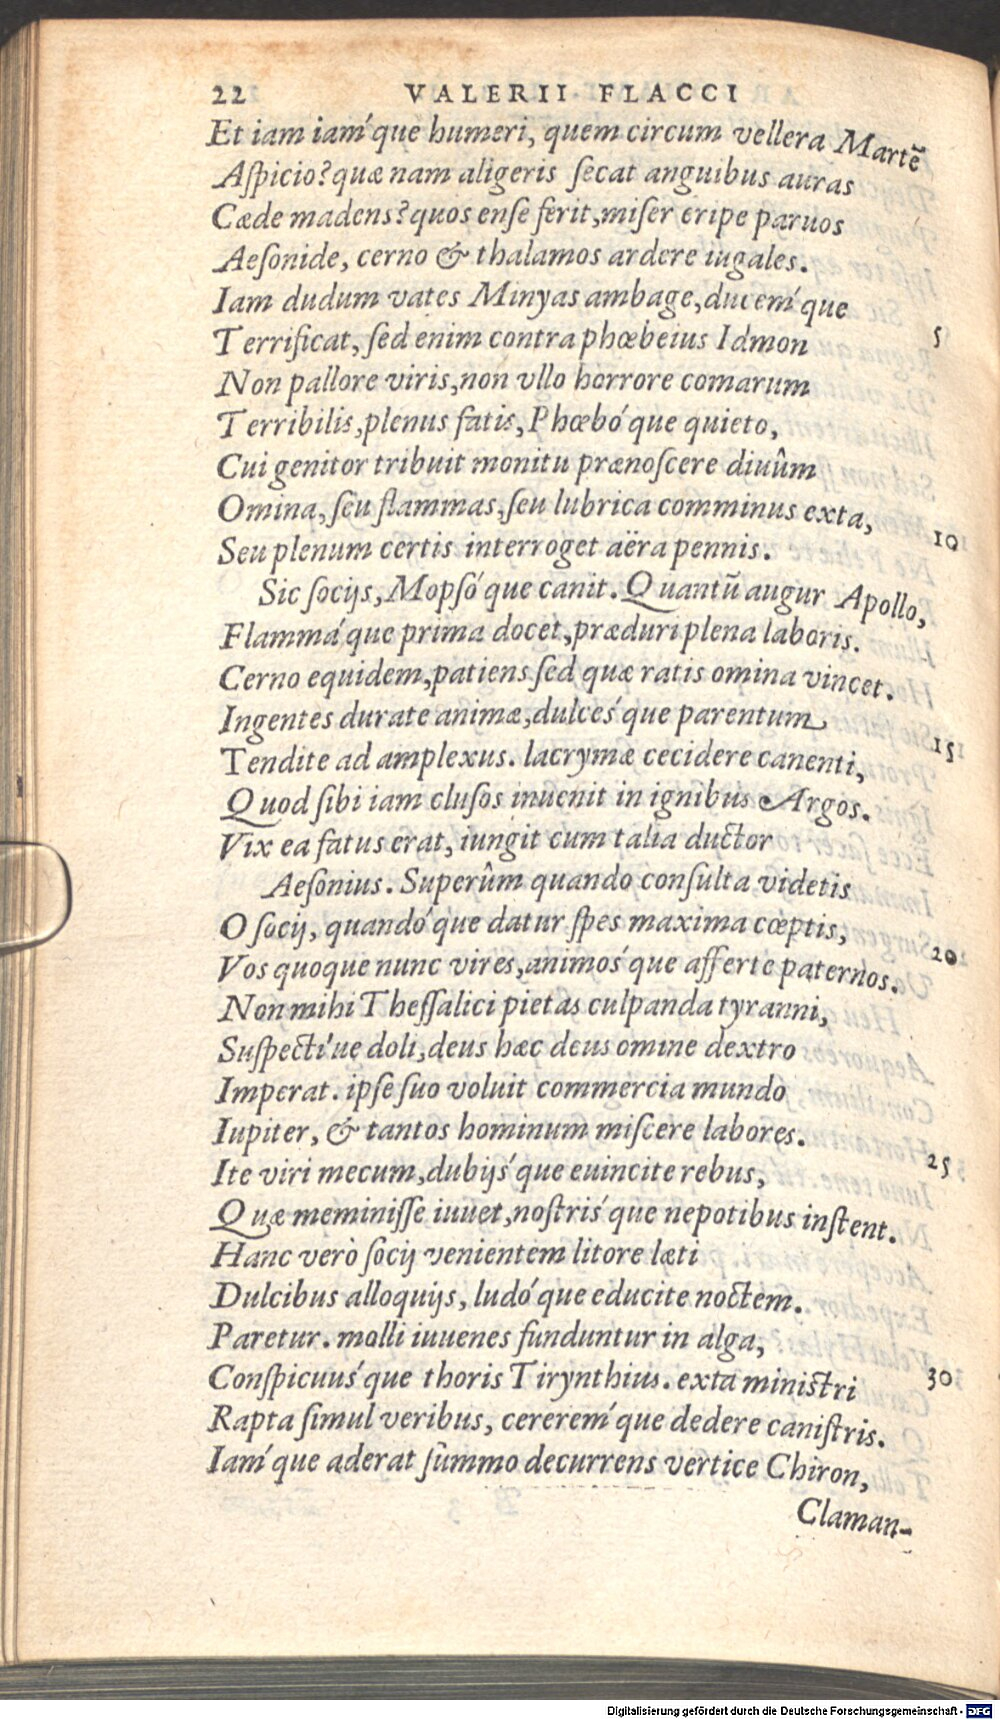 22 VALERII FLACCI
Et iam iam´que humeri, quem circum vellera Martē
Aſpicio? quæ nam aligeris ſecat anguibus auras
Cæde madens? quos enſe ferit, miſer eripe paruos
Aeſonide, cerno & thalamos ardere iugales.
Iam dudum vates Minyas ambage, ducem´que
Terrificat, ſed enim contra phœbeius Idmon 5
Non pallore viris, non vllo horrore comarum
Terribilis, plenus fatis, Phœbó que quieto,
Cui genitor tribuit monitu prænoſcere diuûm
Omina, ſeu flammas, ſeu lubrica comminus exta,
Seu plenum certis interroget aëra pennis. 10
Sic ſocijs, Mopſó que canit. Quantū augur Apollo,
Flammá que prima docet, præduri plena laboris.
Cerno equidem, patiens ſed quæ ratis omina vincet.
Ingentes durate animæ, dulces´que parentum
Tendite ad amplexus. lacrymæ cecidere canenti, 15
Quod ſibi iam cluſos inuenit in ignibus Argos.
Vix ea fatus erat, iungit cum talia ductor
Aeſonius. Superûm quando conſulta videtis
O ſocij, quandó que datur ſpes maxima cœptis,
Vos quoque nunc vires, animos´que afferte paternos. 20
Non mihi Theſſalici pietas culpanda tyranni,
Suſpecti´ue doli, deus hæc deus omine dextro
Imperat. ipſe ſuo voluit commercia mundo
Iupiter, & tantos hominum miſcere labores.
Ite viri mecum, dubijs´que euincite rebus, 25
Quæ meminiſſe iuuet, noſtris´que nepotibus inſtent.
Hanc verò ſocij venientem litore læti
Dulcibus alloquijs, ludó que educite noctem.
Paretur. molli iuuenes funduntur in alga,
Conſpicuus´que thoris Tirynthius. exta miniſtri 30
Rapta ſimul veribus, cererem´que dedere caniſtris.
Iam´que aderat ſummo decurrens vertice Chiron,
Claman-
Digitalisierung gefördert durch die Deutsche Forschungsgemeinschaft - DFG